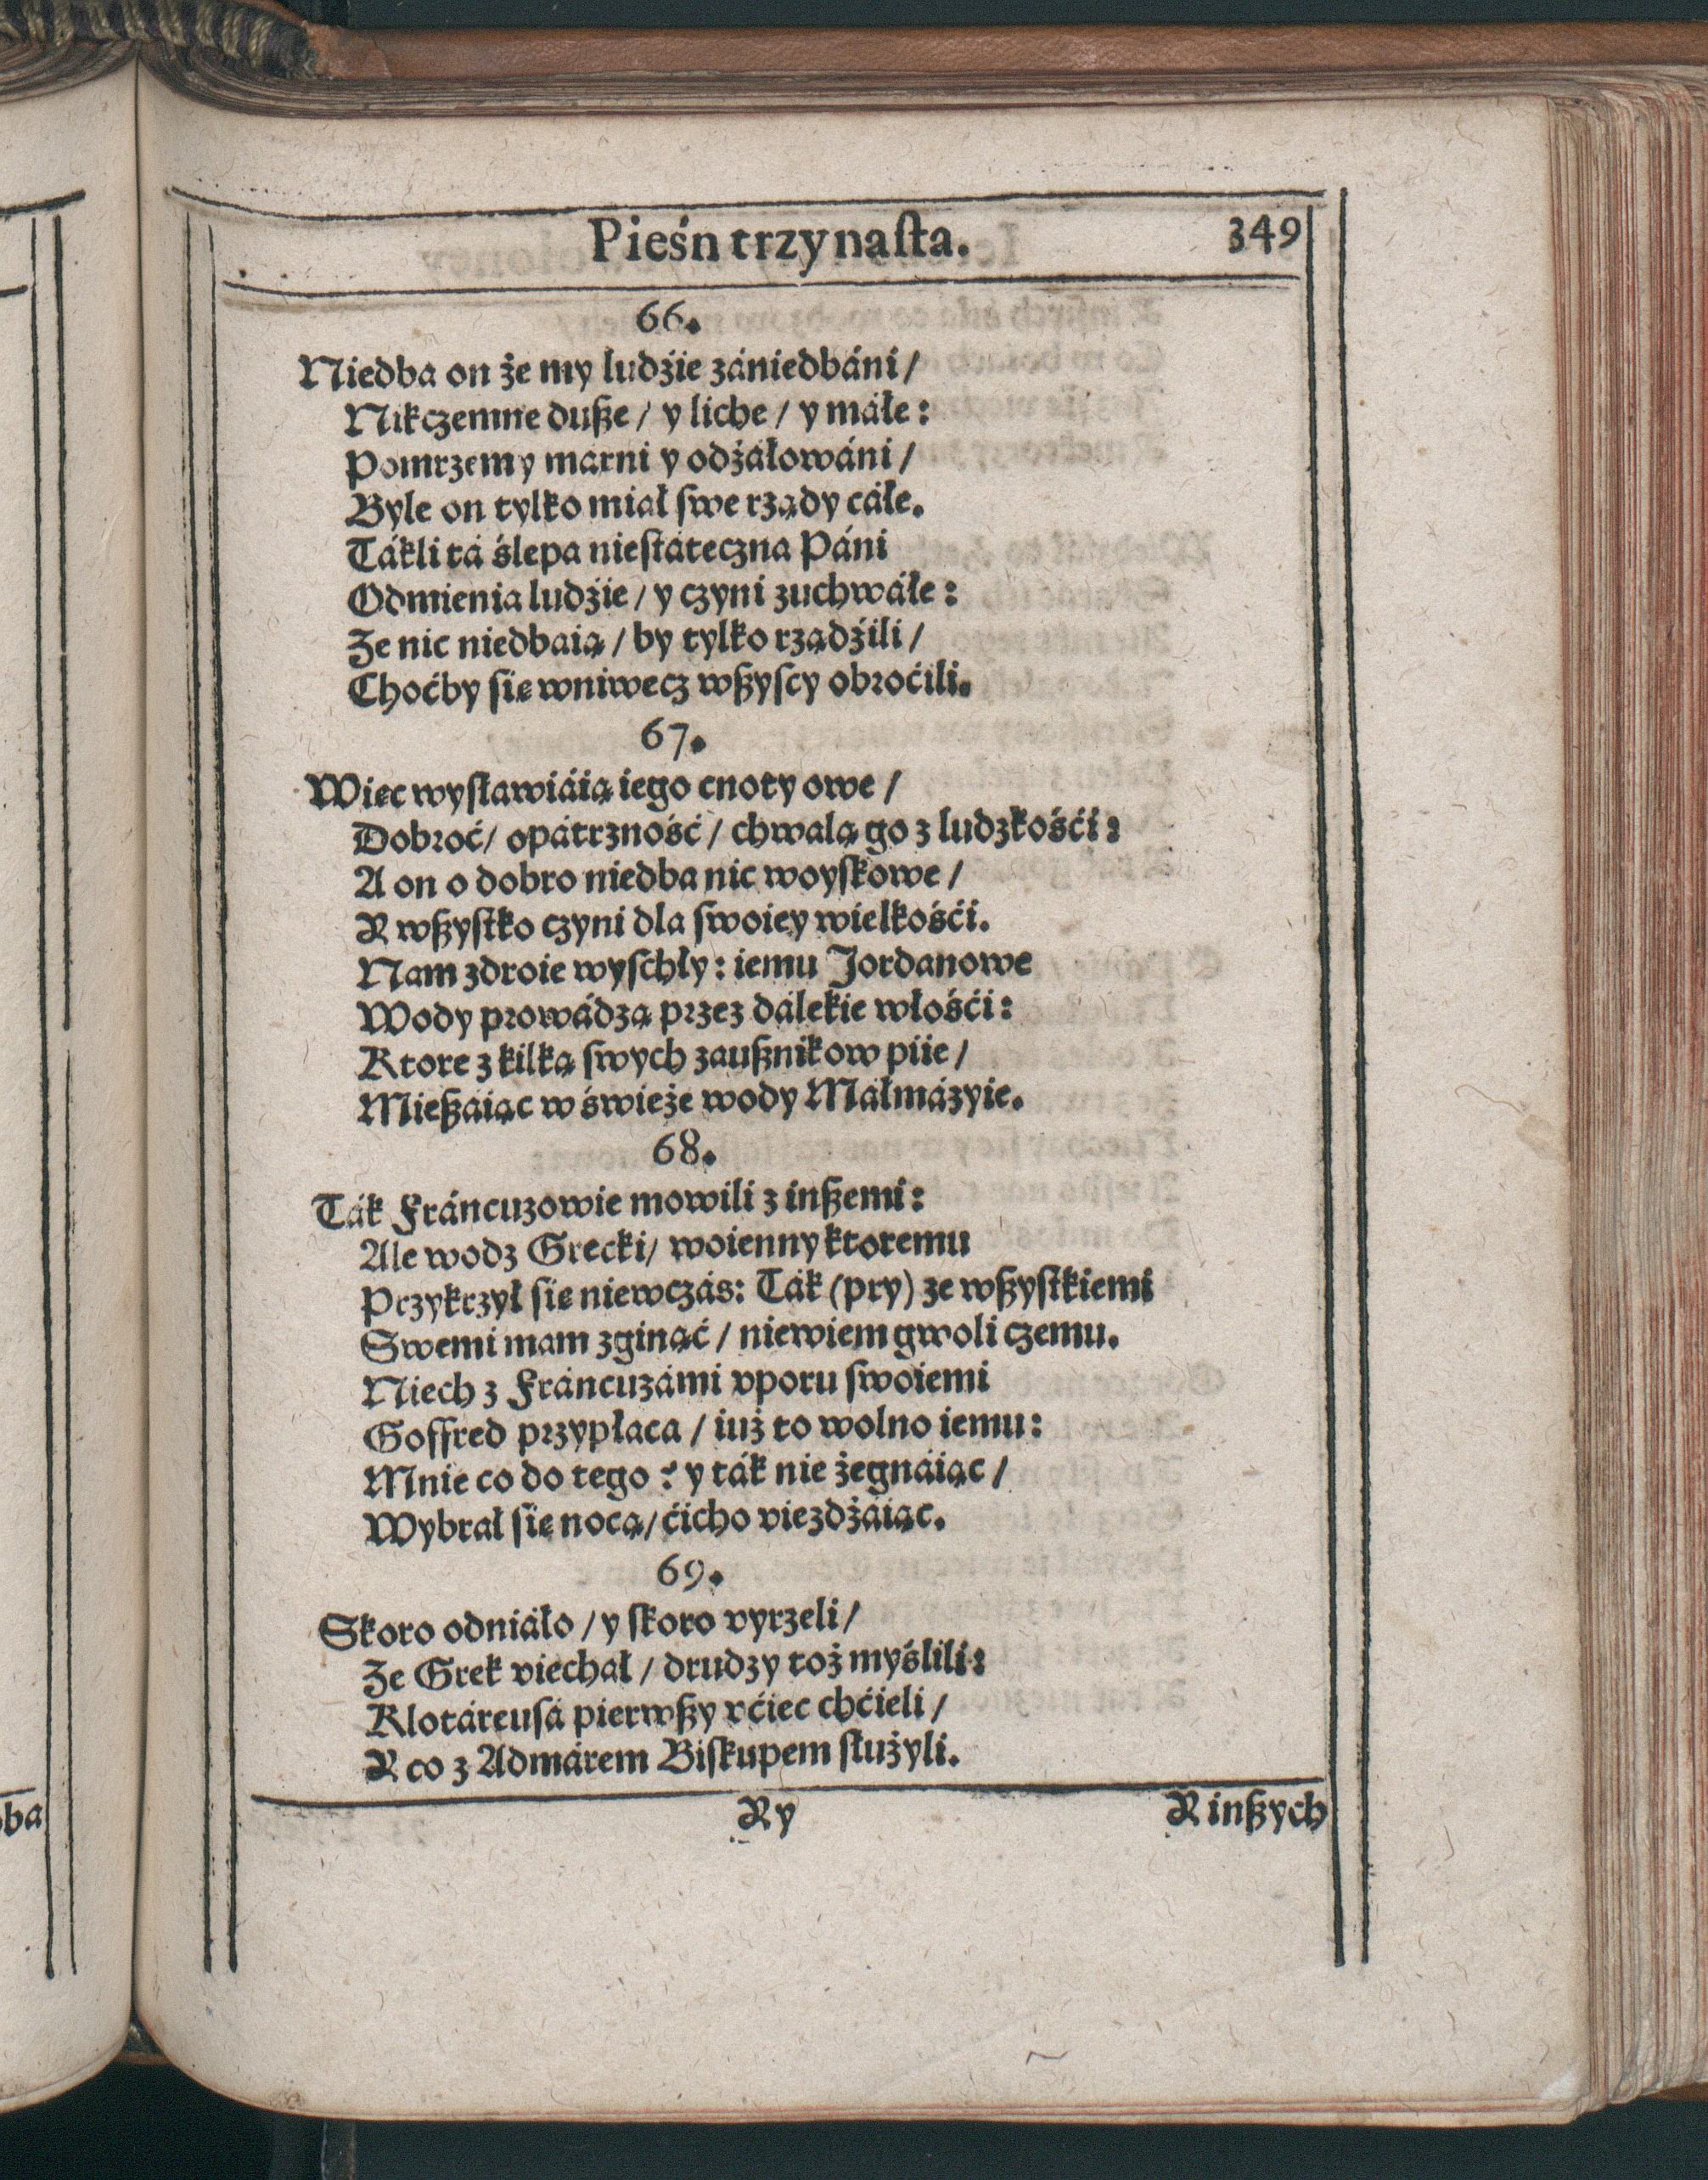 Pieśn trzynaſta. 349
66.
Niedba on że my ludźie zániedbáni /
Nikczemne duße / y liche / y máłe :
Pomrzemy marni y odżáłowáni /
Byle on tylko miał ſwe rządy cáłe.
Tákli tá ślepa nieſtáteczna Páni
Odmienia ludźie / y czyni zuchwáłe :
Ze nic niedbaią / by tylko rządźili /
Choćby ſię wniwecz wßyſcy obroćili.
67.
Więc wyſławiáią iego cnoty owe /
Dobroć / opátrzność / chwalą go z ludzkośći :
A on o dobro niedba nic woyſkowe /
Y wßyſtko czyni dla ſwoiey wielkośći.
Nam zdroie wyſchły : iemu Jordanowe
Wody prowádzą przez dálekie włośći :
Ktore z kilką ſwych zaußnikow piie /
Mießáiąc w świeże wody Máłmázyie.
68.
Ták Fráncuzowie mowili z inßemi :
Ale wodz Grecki / woienny ktoremu
Przykrzył ſię niewczás : Ták (pry) ze wßyſtkiemi
Swemi mam zginąć / niewiem gwoli czemu.
Niech z Fráncuzámi vporu ſwoiemi
Goffred przypłaca / iuż to wolno iemu :
Mnie co do tego ? y ták nie żegnáiąc /
Wybrał ſię nocą / ćicho viezdżáiąc.
69.
Skoro odniáło / y ſkoro vyrzeli /
Ze Grek viechał / drudzy toż myślili :
Klotáreuſá pierwßy vćiec chćieli /
Y co z Admárem Biſkupem ſłużyli.
Yy Y inßych
ba